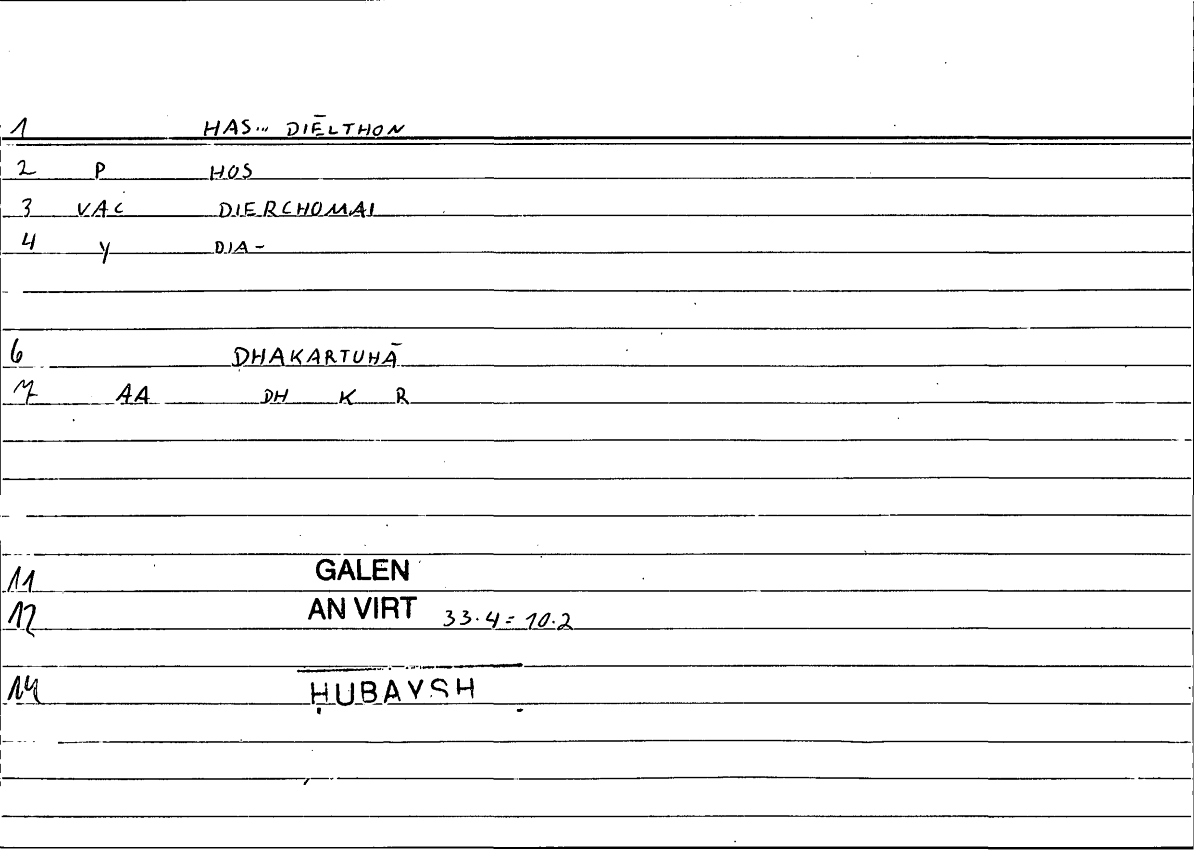 1 HAS... DIĒLTHON
2 P HOS
3 VAC DIERCHOMAI
4 Y DIA-
6 DHAKARTUHĀ
7 AA DH K R
11 GALEN
12 AN VIRT 33.4 = 10.2
14 ḤUBAYSH